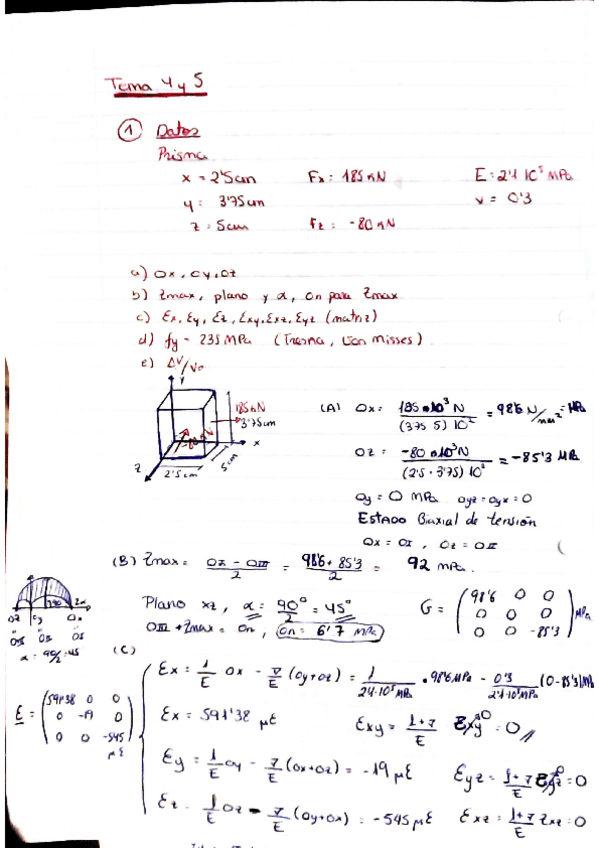 Tema 4 y 5
① Datos
Prisma
x = 2'5cm Fx: 185 kN E: 2'1·10⁵ MPa
y: 3'75cm v = 0'3
z = 5cm Fz: -80 kN
a) σx, σy, σz
b) Zmax, plano y α, σn para Zmax
c) Ex, Ey, Ez, Exy, Exz, Eyz (matriz)
d) fy = 235 MPa (Tresca, Von Misses)
e) ΔV/Vo
y
185 kN
3'75cm
-80 kN
x
z
2'5cm
5cm
(A) σx: 185·10³ N / (3'75·5) 10² = 98'6 N/mm² = MPa
σz: -80·10³ N / (2'5·3'75) 10² = -85'3 MPa
σy = 0 MPa σyz = σyx = 0
ESTADO Biaxial de tensión
σx = σI, σz = σIII
(B) Zmax = σI - σIII / 2 = 98'6 + 85'3 / 2 = 92 MPa.
Plano xz, α = 90° / 2 = 45°
σIII + Zmax = σn, σn = 6'7 MPa
G = (98'6 0 0
0 0 0
0 0 -85'3) MPa
σz σy σx
α = 90/2 = 45
(C)
Ex = 1/E σx - v/E (σy+σz) = 1 / 2'1·10⁵ MPa · 98'6 MPa - 0'3 / 2'1·10⁵ MPa (0-85'3) MPa
Ex = 591'38 μE Exy = 1+v / E Zxy⁰ = 0
E = (591'38 0 0
0 -19 0
0 0 -545) μE
Ey = 1/E σy - v/E (σx+σz) = -19 μE Eyz = 1+v / E Zyz⁰ = 0
Ez = 1/E σz - v/E (σy+σx) = -545 μE Exz = 1+v / E Zxz = 0